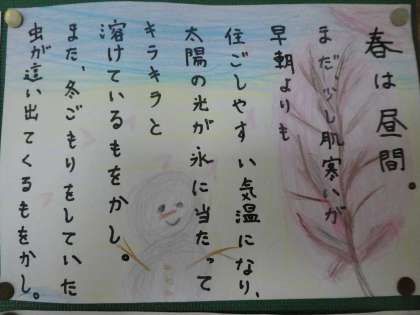 春は昼間。
まだ、少し肌寒いが
早朝よりも
住ごしやすい気温になり、
太陽の光が氷に当たって
キラキラと
溶けているもをかし。
また、冬ごもりをしていた
虫が這い出てくるもをかし。